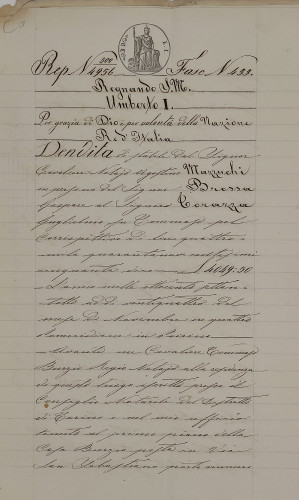 Rep. N. 4956 Fasc. N. 433.
Regnando S. M.
Umberto I.
Per grazia di Dio e per volontà della Nazione
Re d'Italia
Vendita di stabili dal Signor
Cavaliere Notajo Agostino Mazzuchi
in persona del Signor Brossa
Gaspare al Signor Corazza
Guglielmo fu Tommaso pel
corrispettivo di lire quattro
mila quarantanove
cinquanta £ 4049.50
L'anno mille ottocento settan-
totto addì ventiquattro del
mese di Novembre
in
Avanti me Cavaliere Tommaso
Burzio Regio Notajo alla residenza
di questo luogo iscritto presso il
Consiglio Notarile del Distretto
di Torino e nel mio ufficio
tenuto al primo piano della
Casa Burzio posta in Via
San Sebastiano